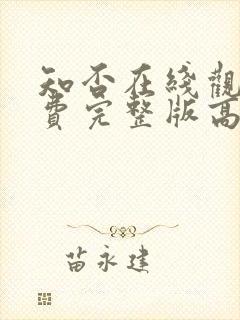 知否在綫觀
費完整版高
苗永建